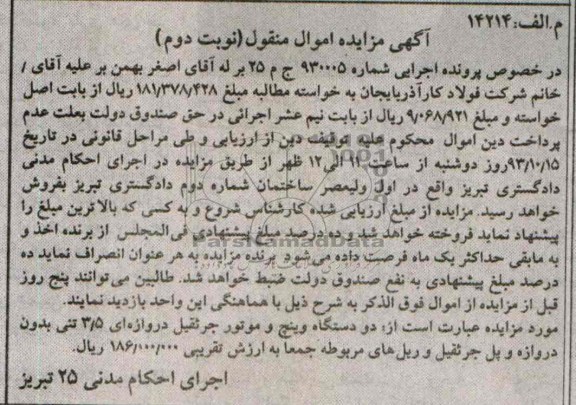 م.الف:۱۴۲۱۴
آگهی مزایده اموال منقول(نوبت دوم)
در خصوص پرونده اجرایی شماره ۹۳۰۰۰۵ ج م ۲۵ بر له آقای اصغر بهمن بر علیه آقای /
خانم شرکت فولاد کارآذربایجان به خواسته مطالبه مبلغ ۱۸۱/۳۷۸/۴۲۸ ریال از بابت اصل
خواسته و مبلغ ۹/۰۶۸/۹۲۱ ریال از بابت نیم عشر اجرائی در حق صندوق دولت بعلت عدم
پرداخت دین اموال محکوم علیه توقیف دین از ارزیابی و طی مراحل قانونی در تاریخ
۹۳/۱۰/۱۵روز دوشنبه از ساعت ۱۱ الی ۱۲ ظهر از طریق مزایده در اجرای احکام مدنی
دادگستری تبریز واقع در اول ولیعصر ساختمان شماره دوم دادگستری تبریز بفروش
خواهد رسید. مزایده از مبلغ ارزیابی شده کارشناس شروع و به کسی که بالا ترین مبلغ را
پیشنهاد نماید فروخته خواهد شد و ده درصد مبلغ پیشنهادی فی المجلس از برنده اخذ و
به مابقی حداکثر یک ماه فرصت داده می شود برنده مزایده به هر عنوان انصراف نماید ده
درصد مبلغ پیشنهادی به نفع صندوق دولت ضبط خواهد شد. طالبین می توانند پنج روز
قبل از مزایده از اموال فوق الذکر به شرح ذیل با هماهنگی این واحد بازدید نمایند.
مورد مزایده عبارت است از: دو دستگاه وینچ و موتور جرثقیل دروازه ای ۳/۵ تنی بدون
دروازه و پل جرثقیل و ریل های مربوطه جمعا به ارزش تقریبی ۱۸۶/۱۰۰/۰۰۰ ریال.
اجرای احکام مدنی ۲۵ تبریز
ParsNamadData